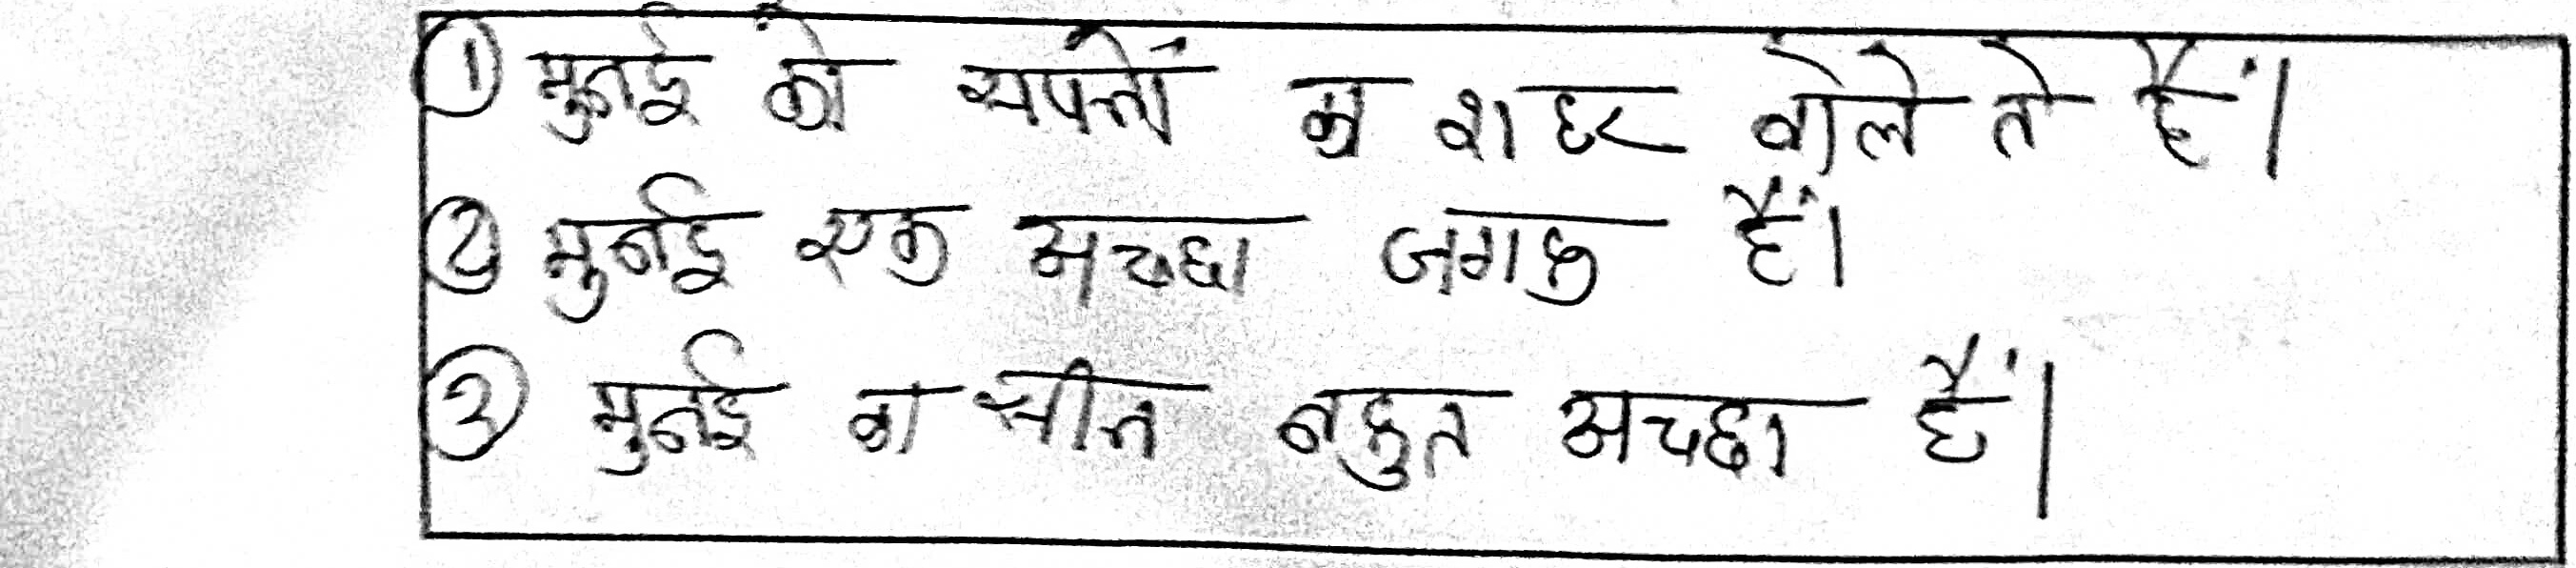 ① मुंबई को सपनों का शहर बोले ते हैं।
② मुबंई एक अच्छा जगह हैं।
③ मुबंई का सीन बहुत अच्छा हैं।